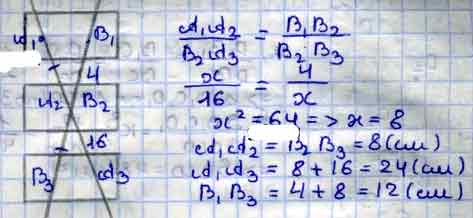 𝒜₁ B₁
4
𝒜₂ B₂
16
B₃ 𝒜₃
𝒜₁𝒜₂ / B₂𝒜₃ = B₁B₂ / B₂B₃
x / 16 = 4 / x
x² = 64 => x = 8
𝒜₁𝒜₂ = B₂B₃ = 8 (см)
𝒜₁𝒜₃ = 8 + 16 = 24 (см)
B₁B₃ = 4 + 8 = 12 (см)